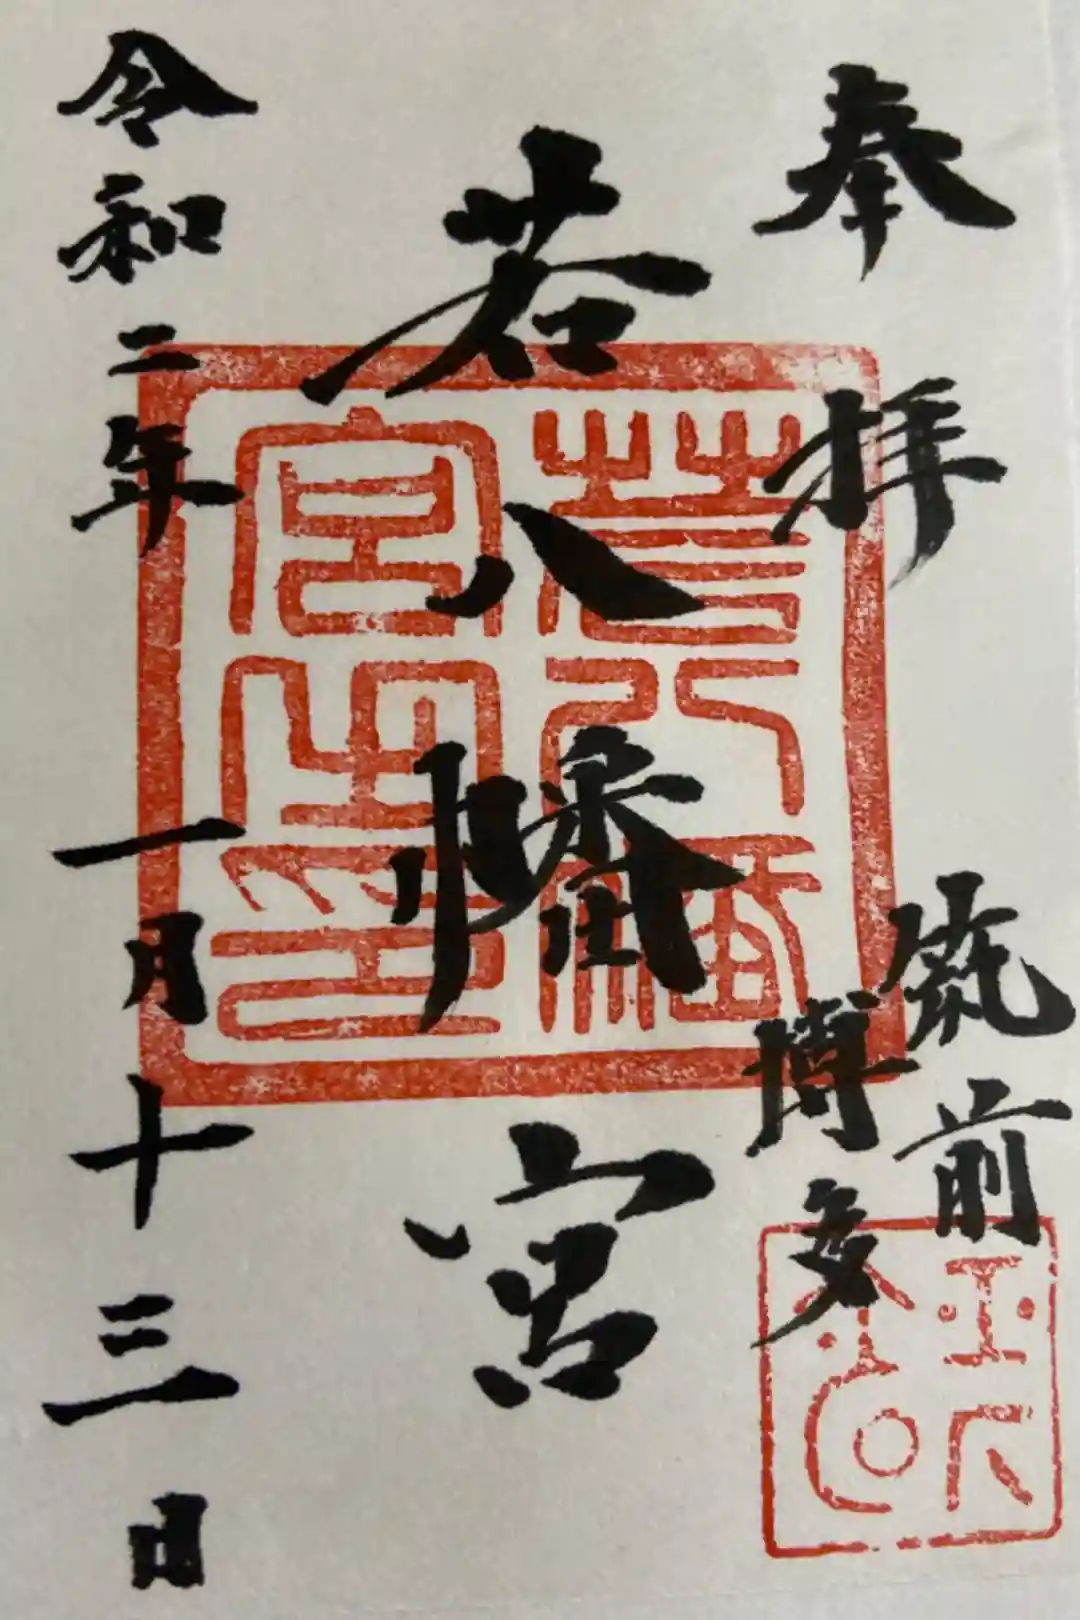 奉拝
筑前
博多
若八幡宮
若八幡宮之印
令和二年一月十三日